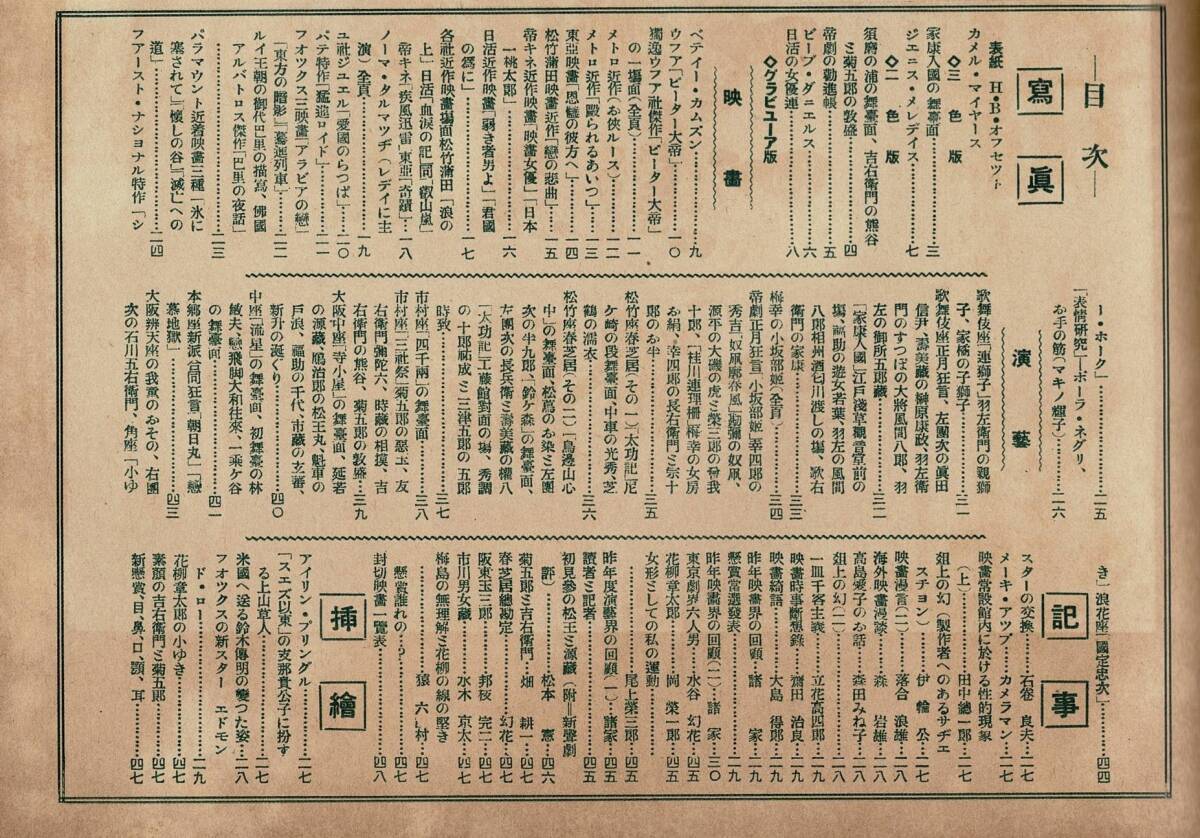 ―目次―
寫眞
表紙 H・B・オフセット
カメル・マイヤース
◇三色版
家康入國の舞臺面……三
ジエニス・メレデイス……七
◇二色版
須磨の浦の舞臺面、吉右衛門の熊谷
ミ菊五郎の敦盛……四
帝劇の勸進帳……五
ビーブ・ダニエルス……六
日活の女優連……八
◇グラビユーア版
映畫
ベテイー・カムズン……九
ウフア「ピーター大帝」……一〇
獨逸ウフア社傑作「ピーター大帝」
の一場面(全頁)……一一
メトロ近作(お俠ルース)……一二
メトロ近作「毆られるあいつ」……一三
東亞映畫「恩讐の彼方へ」……一四
松竹蒲田映畫近作「戀の悲曲」……一五
帝キネ近作映畫「映畫女優」「日本
一桃太郎」……一六
日活近作映畫「弱き者男よ」「君國
の爲に」……一七
各社近作映畫場面松竹蒲田「浪の
上」日活「血涙の記」同「叡山嵐」
帝キネ「疾風迅雷」東亞「奇蹟」……一八
ノーマ・タルマツヂ(レデイに主
演)全頁……一九
ユ社ジユエル「愛國のらつぱ」……二〇
パテ特作「猛進ロイド」……二一
フオツクス三映畫「アラビアの戀」
「東方の暗影」「驀進列車」……二二
ルイ王朝の御代巴里の描寫、佛國
アルバトロス傑作「巴里の夜話」
……二三
パラマウント近着映畫三種「氷に
塞されて」「懷しの谷」「滅亡への
道」……二四
フアースト・ナシヨナル特作「シ
ー・ホーク」……二五
「表情研究」―ポーラ・ネグリ、
お手の筋(マキノ輝子)……二六
演藝
歌舞伎座「連獅子」羽左衛門の親獅
子、家橘の子獅子……三一
歌舞伎座正月狂言、左團次の眞田
信尹、壽美藏の榊原康政、羽左衛
門のすつぱの大將風間八郎、羽
左の御所五郎藏……三二
「家康入國」江戸淺草觀音堂前の
場、福助の遊女若葉、羽左の風間
八郎相州酒匂川渡しの場、歌右
衛門の家康……三三
梅幸の小坂部姫(全頁)……三四
帝劇正月狂言、「小坂部姫」幸四郎の
秀吉「奴凧廓春風」勘彌の奴凧、
源平の大磯の虎ミ榮三郎の曾我
十郎、「桂川連理柵」梅幸の女房
お絹、幸四郎の長右衛門ミ宗十
郎のお半……三五
松竹座春芝居(その一)(太功記)尼
ケ崎の段舞臺面、中車の光秀、芝
鶴の濡衣……三六
松竹座春芝居(その二)「鳥邊山心
中」の舞臺面、松蔦のお染ミ左團
次の半九郎「鈴ケ森」の舞臺面、
左團次の長兵衛ミ壽美藏の權八
「太功記」工藤館對面の場、秀調
の十郎祐成ミ三津五郎の五郎
時致……三七
市村座「四千兩」の舞臺面……三八
市村座「三社祭」菊五郎の惡玉、友
右衛門彌陀六、時藏の相摸、吉
右衛門の熊谷、菊五郎の敦盛……三九
大阪中座「寺小屋」の舞臺面、延若
の源藏、鴈治郎の松王丸、魁車の
戸浪、福助の千代、市藏の玄蕃、
新升の涎ぐり……四〇
中座「流星」の舞臺面、初舞臺の林
敏夫、「戀飛脚大和往來」一乘ケ谷
の舞臺面……四一
本鄉座新派合同狂言「朝日丸」「戀
慕地獄」……四二
大阪辨天座の我童のおその、右團
次の石川五右衛門、角座「小ゆ
き」浪花座「國定忠次」……四四
記事
スターの交換……石卷良夫……二七
メーキ・アツプ……カメラマン……二七
映畫常設館内に於ける性的現象
(上)……田中總一郎……二七
俎上の幻(製作者へのあるサヂエ
スチヨン)……伊輪公……二七
映畫漫言(二)……落合浪雄……二八
海外映畫漫談……森岩雄……二八
高島愛子のお話……森田みね子……二八
俎上の幻(二)……二八
一皿千客主義……立花高四郎……二八
映畫時事斷想錄……齋田治良……二九
映畫綺語……大島得郎……二九
昨年映畫界の回顧……諸家……二九
懸賞當選發表……二九
昨年映畫界の回顧(二)……諸家……三〇
東京劇界六人男……水谷幻花……四五
花柳章太郎……岡榮一郎……四五
女形としての私の運動
……尾上榮三郎……四五
昨年度演藝界の回顧(一)……諸家……四五
讀者ミ記者……四五
初見參の松王ミ源藏(附=新聲劇
評)……松本憲……四六
菊五郎ミ吉右衛門……畑耕一……四六
春芝居總勘定……幻花……四七
阪東玉三郎……邦枝完二……四七
市川男女藏……水木京太……四七
梅島の無理解ミ花柳の線の堅き
……猿六村……四七
懸賞誰れの・?……四七
封切映畫一覽表……四八
挿繪
アイリン・プリングル……二七
「スエズ以東」の支那貴公子に扮す
る上山草人……二七
米國へ送る鈴木傳明の變つた姿……二八
フオツクスの新スターエドモン
ド・ロー……二九
花柳章太郎の小ゆき……四七
素顏の吉右衛門ミ菊五郎……四七
新懸賞、目、鼻、口、顎、耳……四七